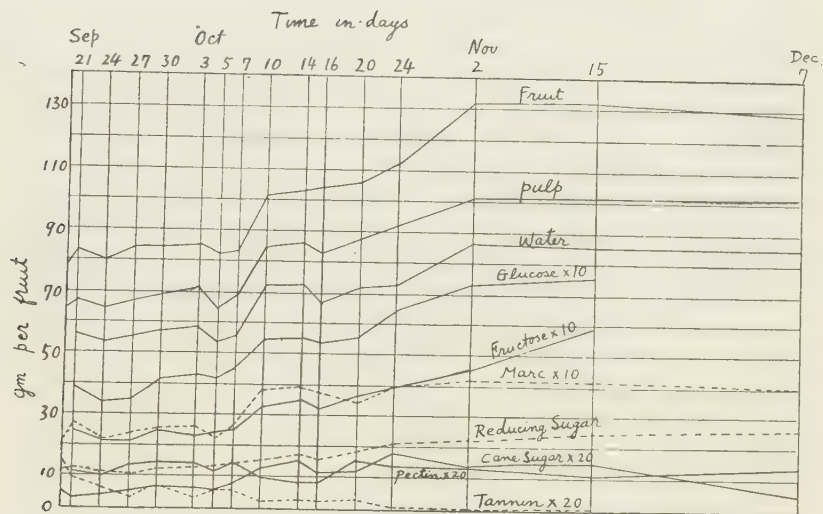 Time in days
Sep Oct Nov Dec.
21 24 27 30 3 5 7 10 14 16 20 24 2 15 7
130
110
90
70
50
30
10
0
gm per fruit
Fruit
pulp
Water
Glucose x 10
Fructose x 10
Marc x 10
Reducing Sugar
Cane Sugar x 20
Pectin x 20
Tannin x 20